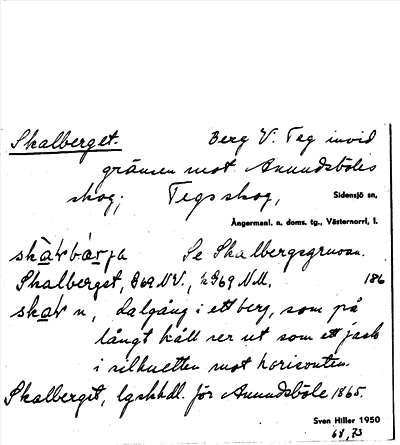 Skalberget. Berg V. Teg invid
gränsen mot Anundsböles
skog; Tegs skog, Sidensjö sn,
Ångermanl. n. doms. tg., Västernorrl. l.
Se Skalbergsgruvan.
Skalberget, G69 NV., k G69 N.M. 186
n, dalgång i ett berg, som på
långt håll ser ut som ett jack
i silhuetten mot horisonten.
Skalberget, lgskhdl. för Anundsböle 1865.
Sven Hiller 1950
68, 73